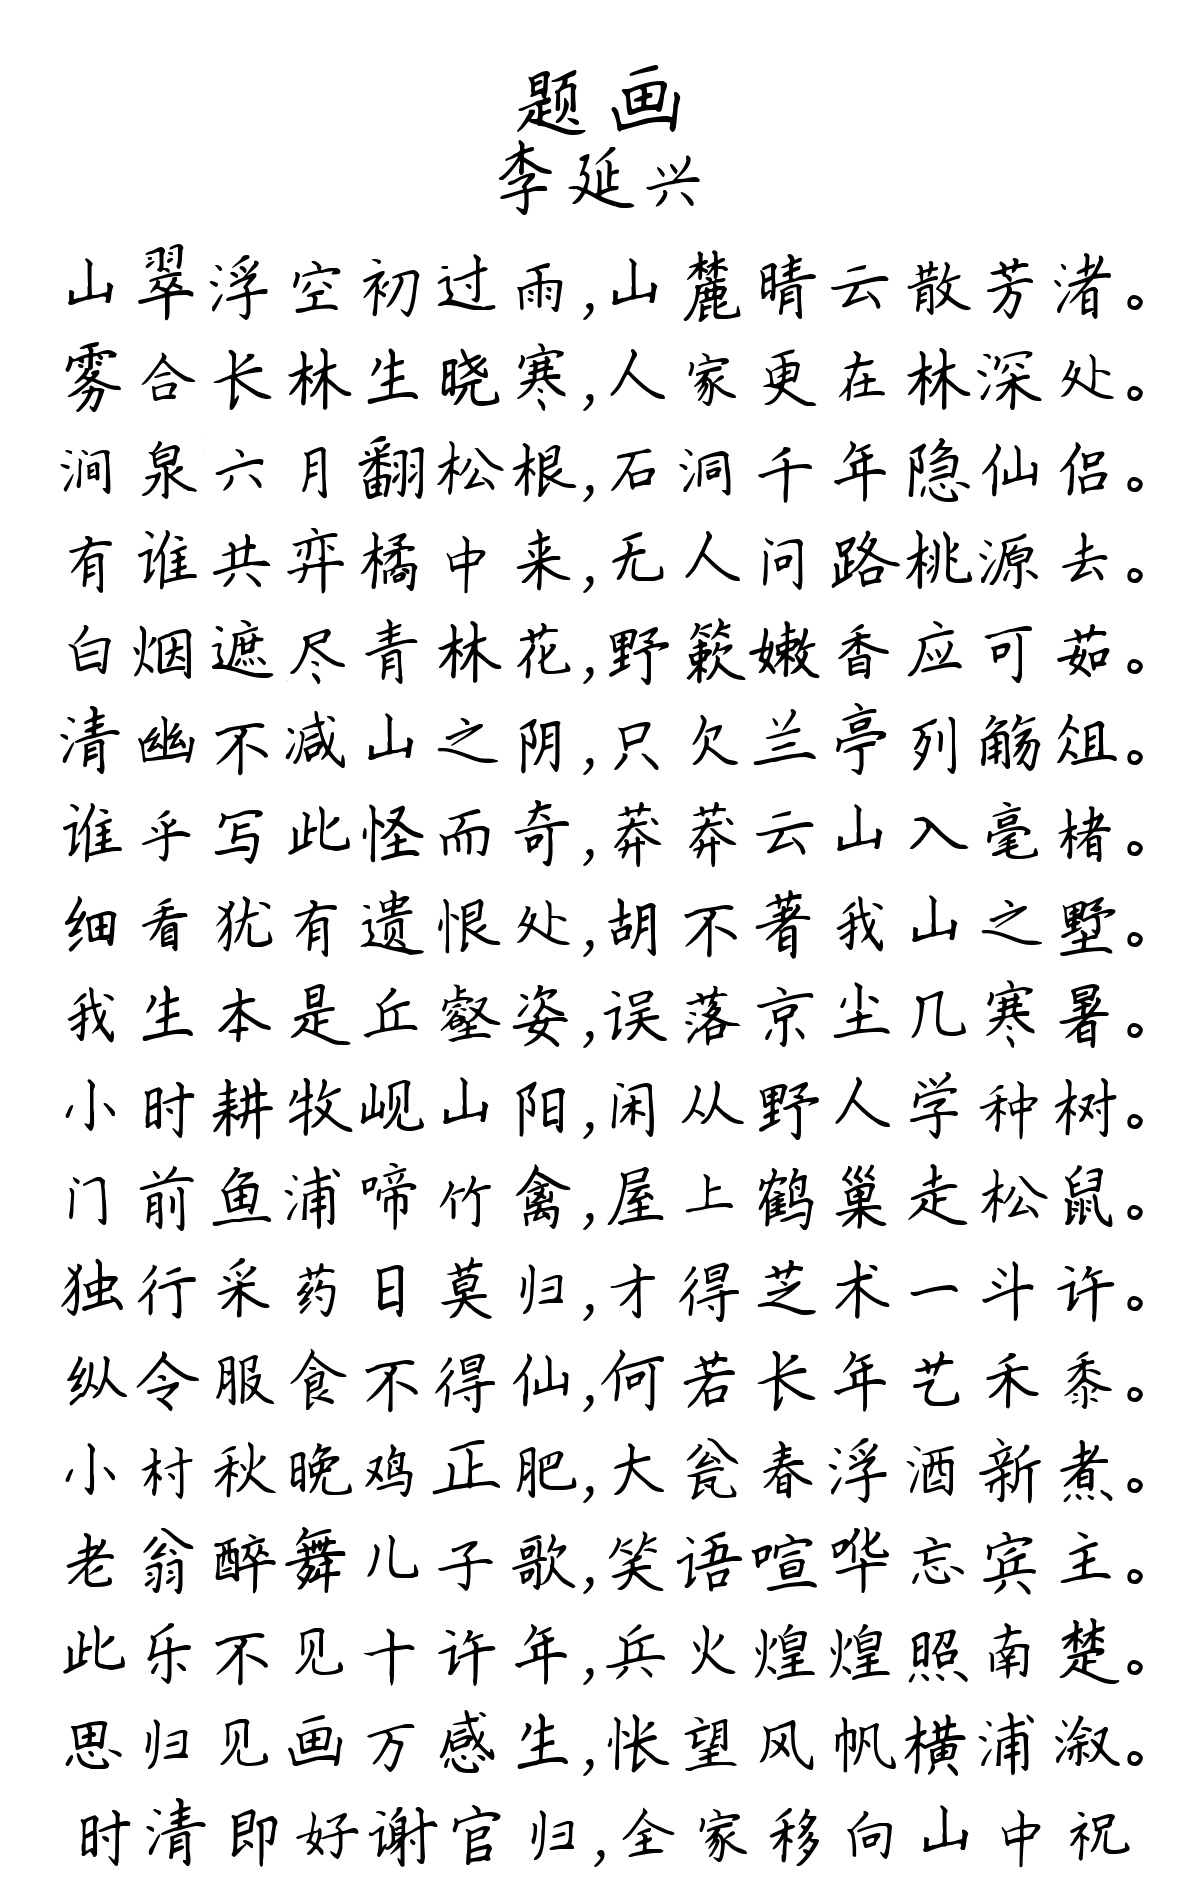 题画
李延兴
山翠浮空初过雨,山麓晴云散芳渚。
雾合长林生晓寒,人家更在林深处。
涧泉六月翻松根,石洞千年隐仙侣。
有谁共弈橘中来,无人问路桃源去。
白烟遮尽青林花,野簌嫩香应可茹。
清幽不减山之阴,只欠兰亭列觞俎。
谁乎写此怪而奇,莽莽云山入毫楮。
细看犹有遗恨处,胡不著我山之墅。
我生本是丘壑姿,误落京尘几寒暑。
小时耕牧岘山阳,闲从野人学种树。
门前鱼浦啼竹禽,屋上鹤巢走松鼠。
独行采药日莫归,才得芝术一斗许。
纵令服食不得仙,何若长年艺禾黍。
小村秋晚鸡正肥,大瓮春浮酒新煮。
老翁醉舞儿子歌,笑语喧哗忘宾主。
此乐不见十许年,兵火煌煌照南楚。
思归见画万感生,怅望风帆横浦溆。
时清即好谢官归,全家移向山中祝